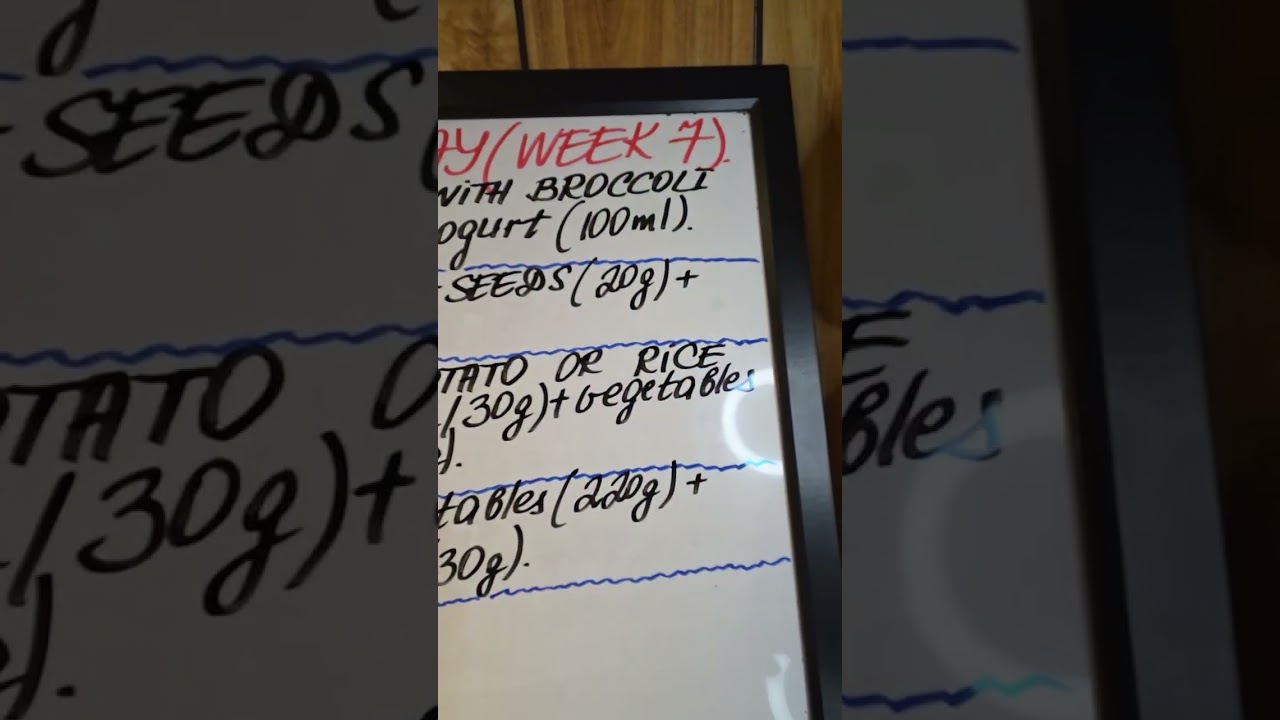 AY (WEEK 7).
WITH BROCCOLI
ogurt (100ml).
SEEDS (20g) +
TATO OR RICE
/30g) + vegetables
).
tables (220g) +
30g).